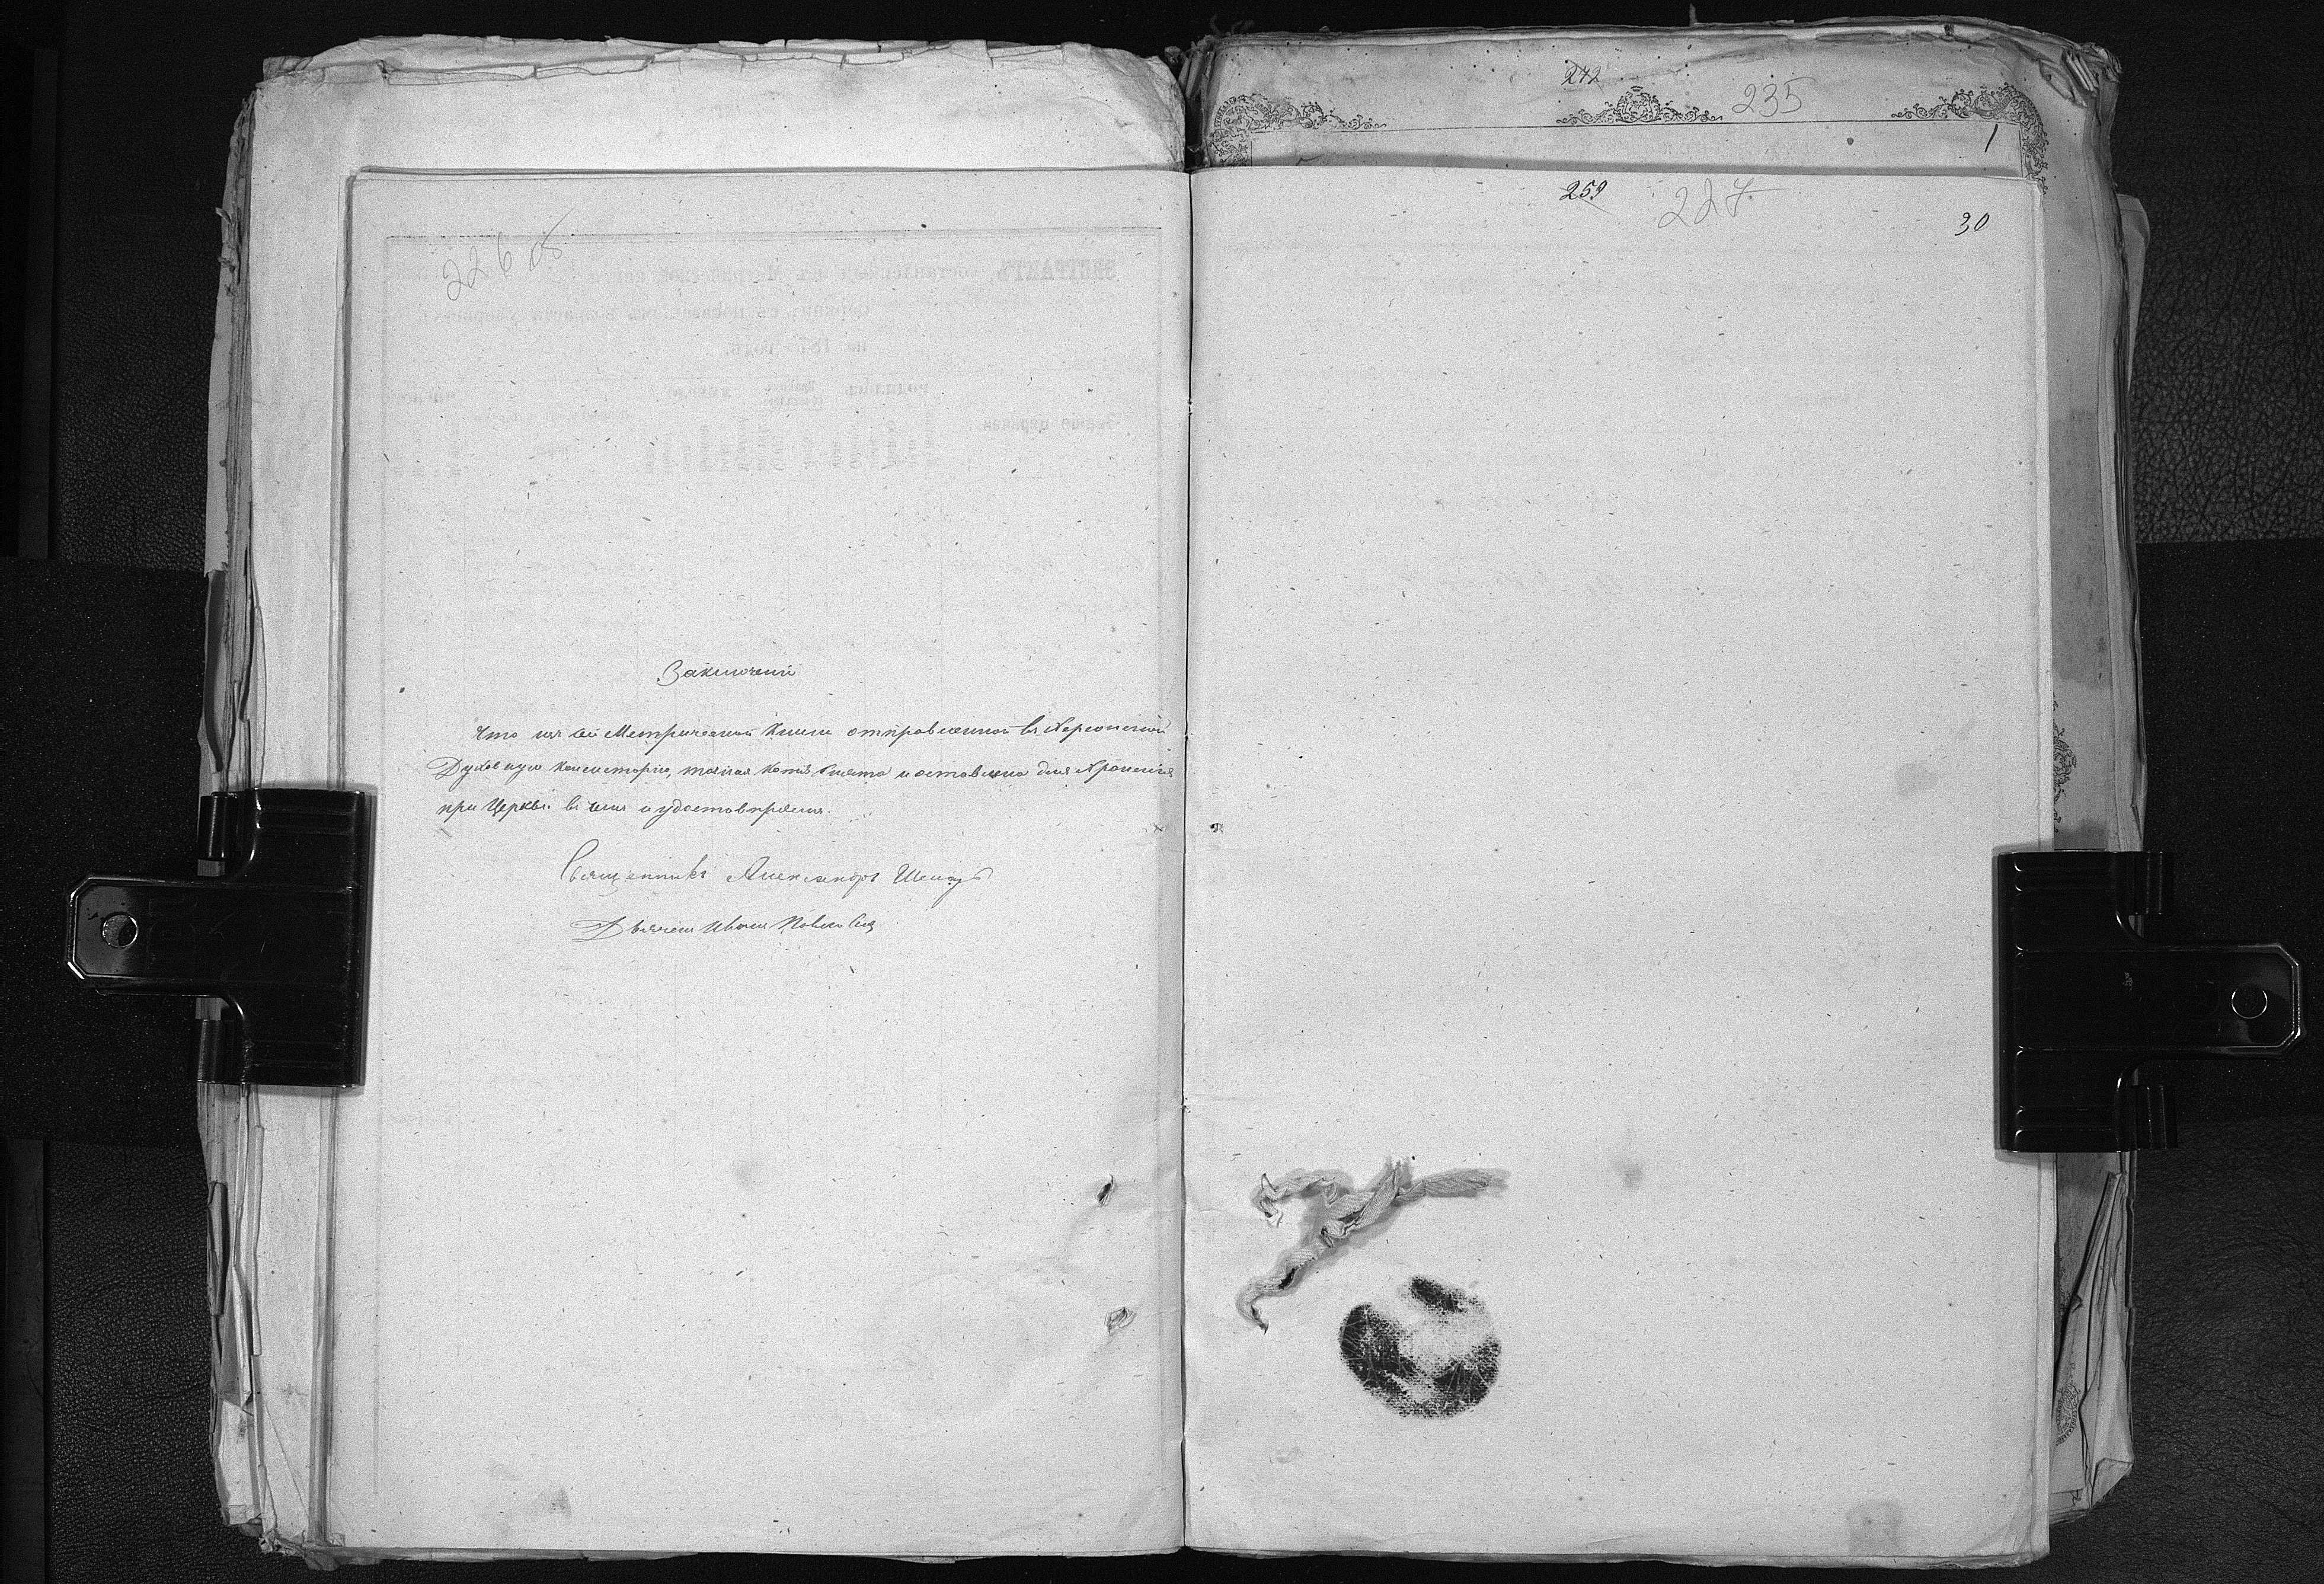 226 об
Заключеніи
что изъ сей Метрической Книги отправленной въ Херсонской
Духовную Консисторію, точная копія снята и оставлена для Храненія
при Церкви въ чемъ и удостовѣряемъ.
Священникъ Александръ
Дьячекъ Иванъ
242
235
1
259
227
30